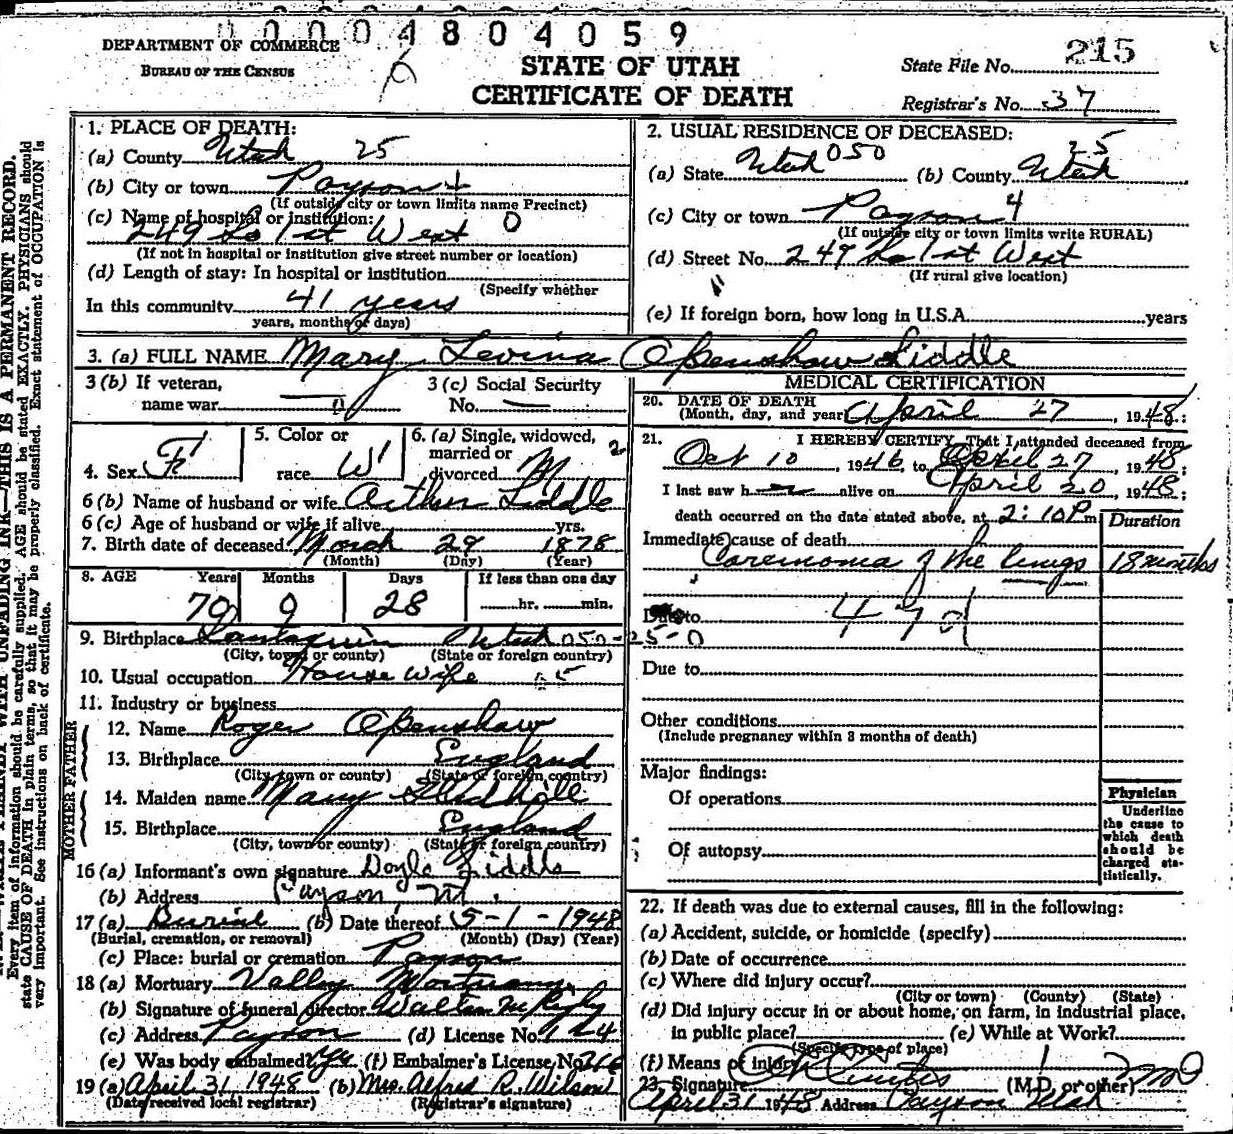 00004804059
DEPARTMENT OF COMMERCE
BUREAU OF THE CENSUS
STATE OF UTAH
CERTIFICATE OF DEATH
State File No. 215
Registrar's No. 37
THIS IS A PERMANENT RECORD.
Every item of information should be carefully supplied. AGE should be stated EXACTLY. PHYSICIANS should
state CAUSE OF DEATH in plain terms, so that it may be properly classified. Exact statement of OCCUPATION is
very important. See instructions on back of certificate.
1. PLACE OF DEATH:
(a) County Utah 25
(b) City or town Payson
(If outside city or town limits name Precinct)
(c) Name of hospital or institution:
249 So 1st West 0
(If not in hospital or institution give street number or location)
(d) Length of stay: In hospital or institution
(Specify whether
In this community 41 years
years, months or days)
2. USUAL RESIDENCE OF DECEASED:
(a) State Utah 050 (b) County Utah 25
(c) City or town Payson 4
(If outside city or town limits write RURAL)
(d) Street No. 249 So 1st West
(If rural give location)
(e) If foreign born, how long in U.S.A. years
3. (a) FULL NAME Mary Levina Openshaw Liddle
3 (b) If veteran,
name war
3 (c) Social Security
No. —
4. Sex F
5. Color or
race W
6. (a) Single, widowed,
married or
divorced M 2
6 (b) Name of husband or wife Arthur Liddle
6 (c) Age of husband or wife if alive yrs.
7. Birth date of deceased March 29 1878
(Month) (Day) (Year)
8. AGE Years Months Days If less than one day
70 0 28 hr. min.
9. Birthplace Santaquin Utah 050-25-0
(City, town or county) (State or foreign country)
10. Usual occupation House Wife
11. Industry or business
FATHER
12. Name Roger Openshaw
13. Birthplace England
(City, town or county) (State or foreign country)
MOTHER
14. Maiden name Mary
15. Birthplace England
(City, town or county) (State or foreign country)
16 (a) Informant's own signature Doyle Liddle
(b) Address Payson, Ut.
17 (a) Burial (b) Date thereof 5-1-1948
(Burial, cremation, or removal) (Month) (Day) (Year)
(c) Place: burial or cremation Payson
18 (a) Mortuary Valley Mortuary
(b) Signature of funeral director
(c) Address Payson (d) License No. 124
(e) Was body embalmed? Yes (f) Embalmer's License No. 216
19 (a) April 31 1948 (b) Mrs. Alfred R. Wilson
(Date received local registrar) (Registrar's signature)
MEDICAL CERTIFICATION
20. DATE OF DEATH
(Month, day, and year) April 27, 1948;
21. I HEREBY CERTIFY, That I attended deceased from
Oct 10, 1946, to April 27, 1948;
I last saw h alive on April 20, 1948;
death occurred on the date stated above, at 2:10 P m
Duration
Immediate cause of death
Carcinoma of the lungs 18 months
Due to 47d
Due to
Other conditions
(Include pregnancy within 3 months of death)
Major findings:
Of operations
Of autopsy
Physician
Underline
the cause to
which death
should be
charged sta-
tistically.
22. If death was due to external causes, fill in the following:
(a) Accident, suicide, or homicide (specify)
(b) Date of occurrence
(c) Where did injury occur?
(City or town) (County) (State)
(d) Did injury occur in or about home, on farm, in industrial place,
in public place? (e) While at Work?
(Specify type of place)
(f) Means of injury
23. Signature (M.D. or other) MD
April 31 1948 Address Payson Utah